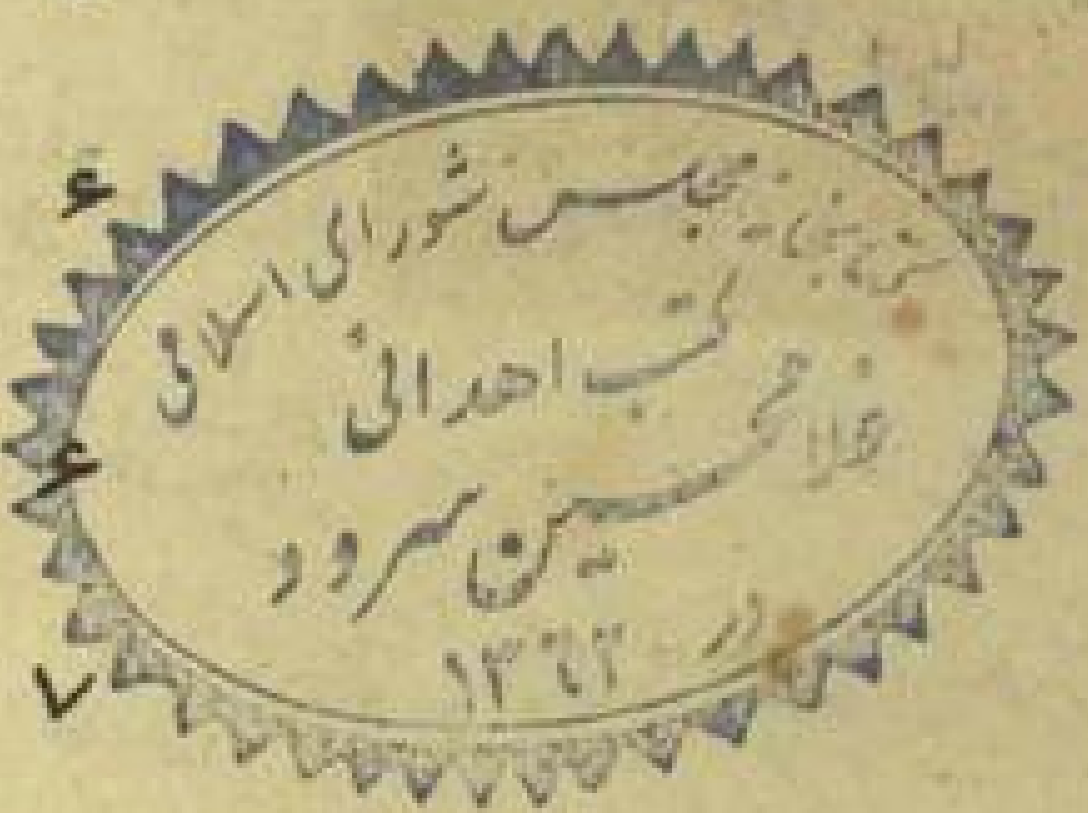 کتابخانه مجلس شورای اسلامی
کتب اهدائی
غلامحسین سرود
در
۱۳
۶
۶
۷